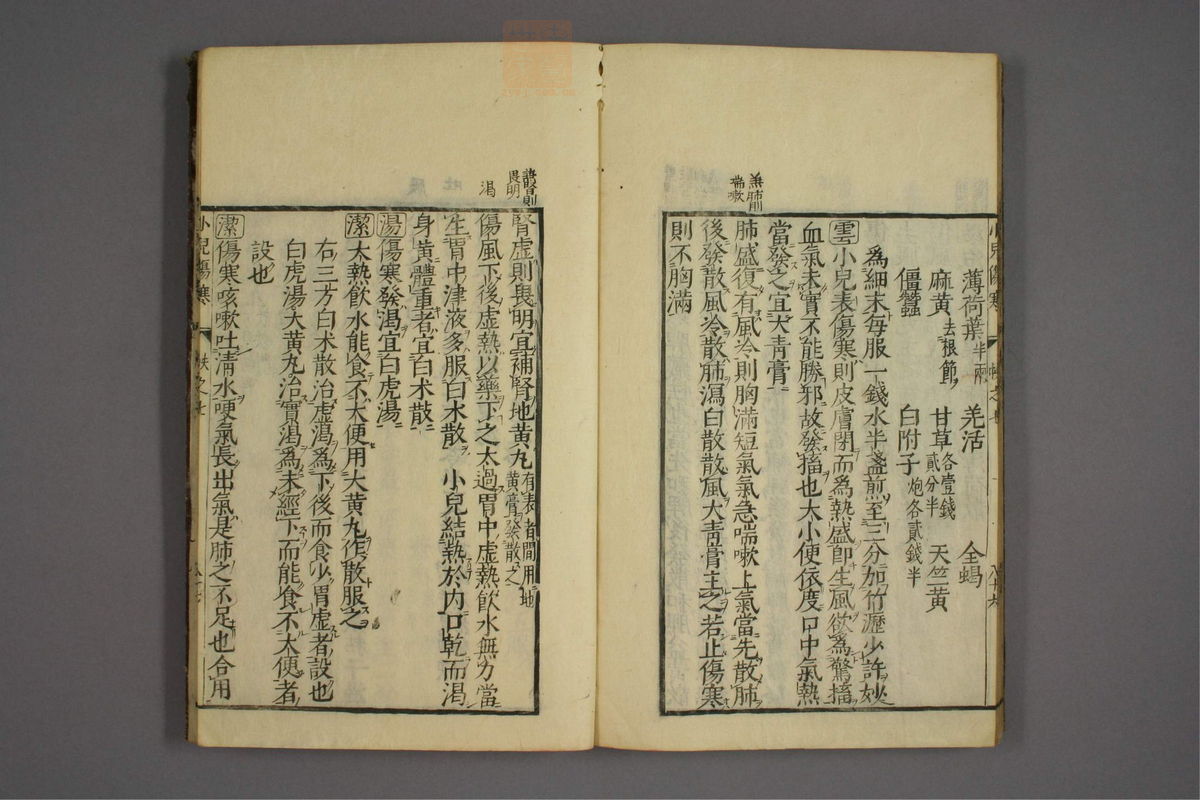 薄荷葉半兩 羌活 全蝎
麻黄去根節 甘草各壹錢貳分半 天竺黄
僵蠶 白附子炮各貳錢半
為細末每服一錢水半盞煎至三分加竹瀝少許妙
雲小兒表傷寒則皮膚閉而為熱盛即生風欲為驚搐
血氣未實不能勝邪故發搐也大小便依度口中氣熱
當發之宜大青膏
無肺則喘嗽
肺盛復有風冷則胸滿短氣氣急喘嗽上氣當先散肺
後發散風冷散肺瀉白散散風大青膏主之若止傷寒
則不胸滿
腎則畏明
腎虛則畏明宜補腎地黄丸有表者間用地黄膏發散之
渴
傷風下後虛熱以藥下之太過胃中虛熱飲水無力當
生胃中津液多服白术散 小兒結熱於内口乾而渴
身黄體重者宜白术散
湯傷寒發渴宜白虎湯
潔大熱飲水能食不大便用大黄丸作散服之
右三方白术散治虛渴為下後而食少胃虛者設也
白虎湯大黄丸治實渴為未經下而能食不大便者
設也
潔傷寒咳嗽吐清水哽氣長出氣是肺之不足也合用
小兒傷寒